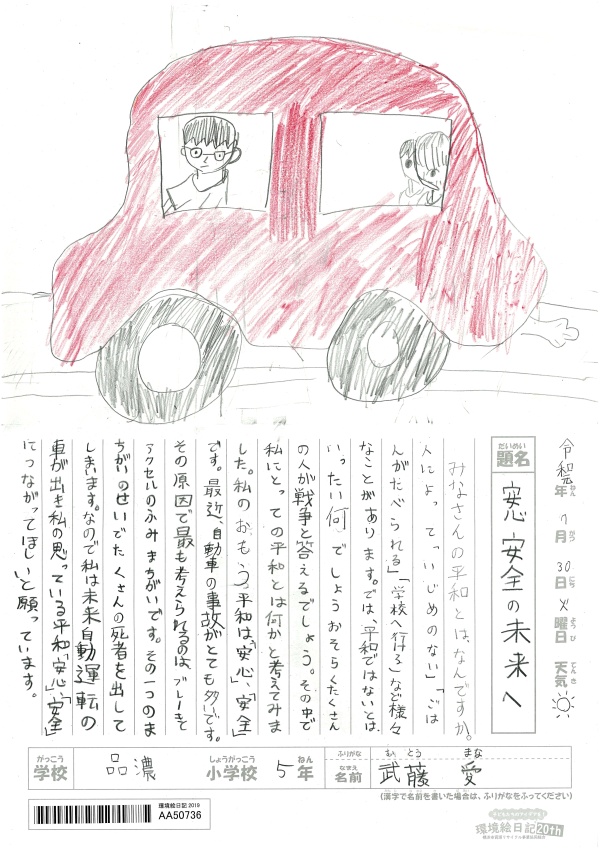 令和元年 7月 30日 火曜日 天気
ねん がつ にち ようび てんき
だいめい
題名 安心安全の未来へ
みなさんの平和とは、なんですか。
人によって「いじめのない」「ごは
んがたべられる」「学校へ行ける」など様々
なことがあります。では、平和ではないとは、
いったい何でしょうおそらくたくさん
の人が戦争と答えるでしょう。その中で
私にとっての平和とは何かと考えてみま
した。私のおもう平和は、「安心」、「安全」
です。最近、自動車の事故がとても多いです。
その原因で最も考えられるのは、ブレーキと
アクセルのふみまちがいです。その一つのま
ちがいのせいでたくさんの死者を出して
しまいます。なので私は未来自動運転の
車が出き私の思っている平和「安心」、「安全」
につながってほしいと願っています。
がっこう しょうがっこう ねん ふりがな むとう まな
学校 品濃 小学校 5年 なまえ 名前 武藤 愛
(漢字で名前を書いた場合は、ふりがなをふってください)
環境絵日記 2019
AA50736
環境絵日記20th